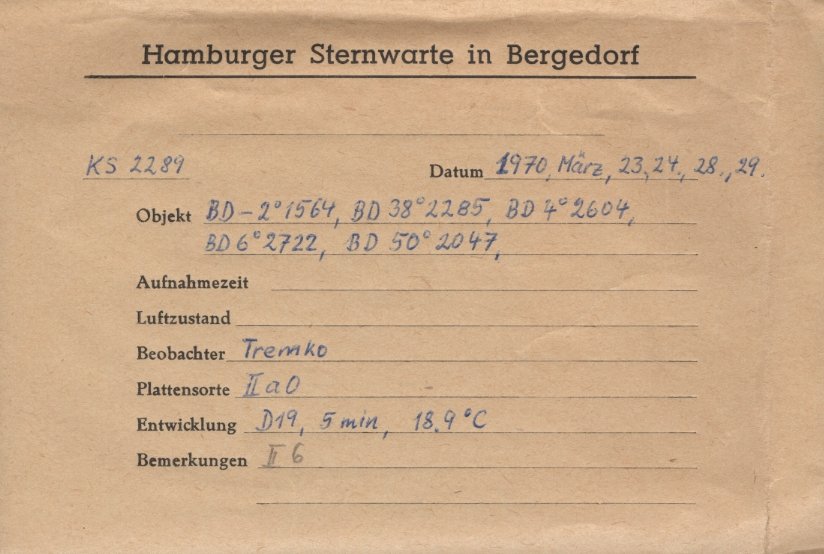 Hamburger Sternwarte in Bergedorf
KS 2289 Datum 1970, März, 23., 24., 28., 29.
Objekt BD-2°1564, BD 38°2285, BD 4°2604,
BD 6°2722, BD 50°2047,
Aufnahmezeit
Luftzustand
Beobachter Tremko
Plattensorte IIaO
Entwicklung D19, 5 min, 18.9°C
Bemerkungen II 6